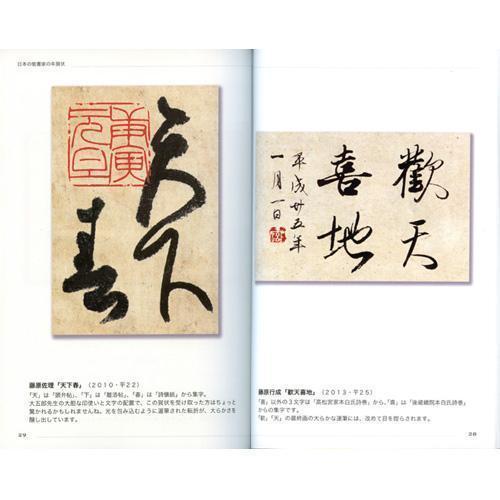 歡天
喜地
平成廿五年
一月一日
藤原行成「歓天喜地」（2013・平25）
「喜」以外の3文字は「高松宮家本白氏詩巻」から、「喜」は「後嵯峨院本白氏詩巻」
からの集字です。
「歓」「天」の最終画の大らかな運筆には、改めて目を瞠らされます。
28
日本の能書家の年賀状
天下
春
庚寅
元旦
藤原佐理「天下春」（2010・平22）
「天」は「頭弁帖」、「下」は「離洛帖」、「春」は「詩懐紙」から集字。
大五郎先生の大胆な印使いと文字の配置で、この賀状を受け取った方はちょっと
驚かれるかもしれませんね。光を包み込むように運筆された転折が、大らかさを
醸し出しています。
29